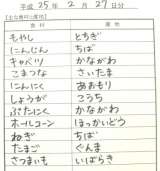 平成 25年 2月 27日分
食材 産地
もやし とちぎ
にんじん ちば
キャベツ かながわ
こまつな さいたま
にんにく あおもり
しょうが こうち
ぶたにく かながわ
ホールコーン ほっかいどう
ねぎ ちば
たまご ぐんま
さつまいも いばらき